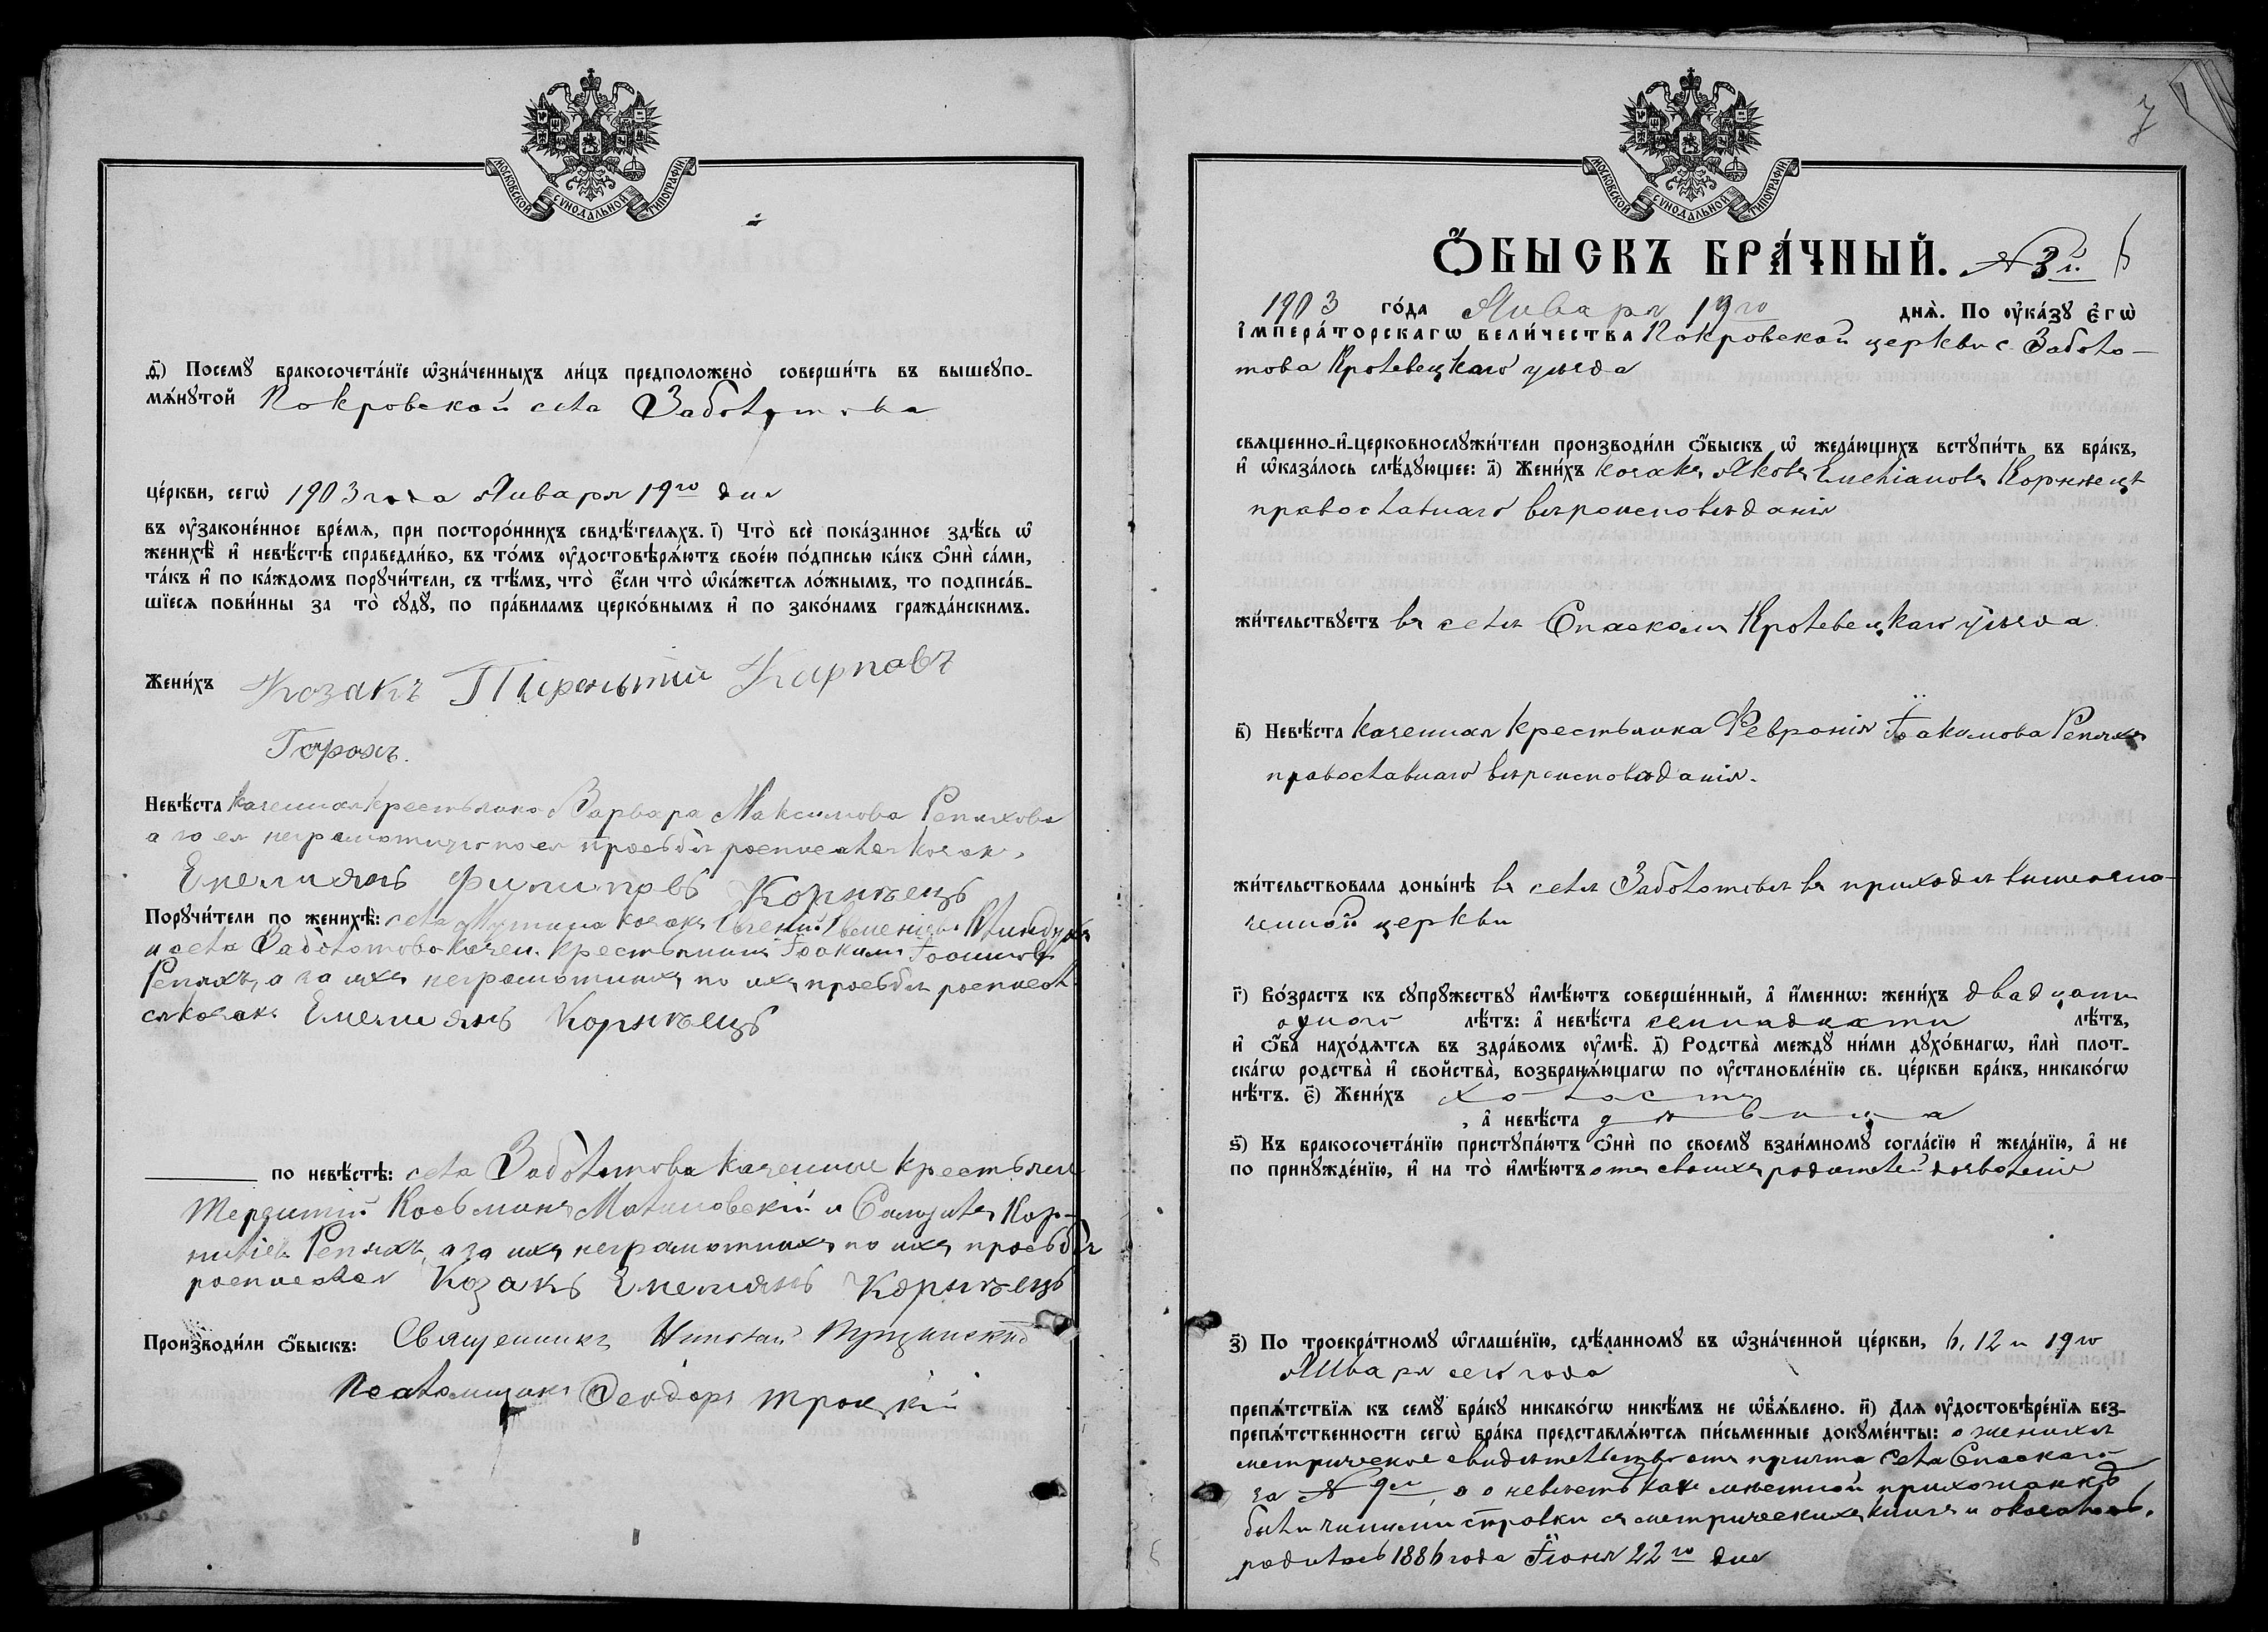 МОСКОВСКОЙ СѴНОДАЛЬНОЙ ТИПОГРАФІИ
ѳ҃) Посемꙋ̀ бракосочета́нїе ѡ҆зна́ченныхъ ли́цъ предположено̀ соверши́ть въ вышеꙋпо-
мѧ́нꙋтой Покровской села Заболотова
це́ркви, сегѡ̀ 1903 года Января 19го дня
въ ᲂу҆законе́нное вре́мѧ, при посторо́ннихъ свидѣ́телѧхъ. і҃) Что̀ всѐ пока́занное здѣ́сь ѡ҆
женихѣ̀ и҆ невѣ́стѣ справедли́во, въ то́мъ ᲂу҆достовѣрѧ́ютъ свое́ю по́дписью ка́къ ѻ҆нѝ са́ми,
та́къ и҆ по ка́ждомъ порꙋчи́тели, съ тѣ́мъ, что̀ є҆́сли что̀ ѡ҆ка́жетсѧ ло́жнымъ, то подписа́в-
шїесѧ пови́нны за то̀ сꙋдꙋ̀, по пра́виламъ церко́внымъ и҆ по зако́намъ гражда́нскимъ.
Жени́хъ Козакъ Терентий Карповъ
Горохъ.
Невѣ́ста казенная крестьянка Варвара Максимова Репяхова
а за ея неграмотную по ея просьбѣ росписался козак.
Емелиянъ Филиповъ Корнѣецъ
Порꙋчи́тели по женихѣ̀: села Мутина козакъ
и села Заболотова казен. крестьянинъ Іоакимъ Іоанновъ
Репяхъ, а за ихъ неграмотныхъ по ихъ просьбѣ росписал
ся козакъ Емелиянъ Корнѣецъ
по невѣ́стѣ: села Заболотова казенные крестьяне
Терентій Косьминъ Малиновскій и Самуилъ Кор-
нилiевъ Репяхъ, а за ихъ неграмотныхъ по ихъ просьбѣ
росписался Козакъ Емелиянъ Корнѣецъ
Произво́дили ѻ҆́быскъ: Священникъ Николай
Псаломщикъ Ѳеодоръ Троцкій
7
МОСКОВСКОЙ СѴНОДАЛЬНОЙ ТИПОГРАФІИ
Ѻ҆́БЫСКЪ БРА́ЧНЫЙ. № 3й.
1903 го́да Января 19го днѧ̀. По ᲂу҆ка́зꙋ є҆гѡ̀
і҆мпера́торскагѡ вели́чества Покровской церкви с. Заболо-
това Кролевецкаго уѣзда
свѧщенно-и҆-церковнослꙋжи́тели производи́ли ѻ҆́быскъ ѡ҆ жела́ющихъ вступи́ть въ бра́къ,
и҆ ѡ҆каза́лось слѣ́дꙋющее: а҃) Жени́хъ козакъ Яковъ Емеліановъ Корнѣецъ
православнаго вѣроисповѣданія
жи́тельствꙋетъ въ селѣ Спаскомъ Кролевецкаго уѣзда.
в҃) Невѣ́ста казенная крестьянка Февронія Іоакимова Репяхъ
православнаго вѣроисповѣданія.
жи́тельствовала доны́нѣ въ селѣ Заболотовѣ въ приходѣ вышеозна-
ченной церкви
г҃) Во́зрастъ къ сꙋпрꙋ́жествꙋ и҆мѣ́ютъ соверше́нный, а҆ и҆́меннѡ: жени́хъ двадцати
одного лѣ́тъ: а҆ невѣ́ста семнадцати лѣ́тъ,
и҆ ѻ҆́ба нахо́дѧтсѧ въ здра́вомъ ᲂу҆мѣ̀. д҃) Родства̀ междꙋ ни́ми дꙋхо́внагѡ, и҆лѝ плот-
ска́гѡ родства̀ и҆ свойства̀, возбранѧ́ющагѡ по ᲂу҆становле́нїю св. це́ркви бра́къ, никако́гѡ
нѣ́тъ. є҃) Жени́хъ холостъ
, а҆ невѣ́ста дѣвица
ѕ҃) Къ бракосочета́нїю пристꙋпа́ютъ ѻ҆нѝ по своемꙋ̀ взаи́мномꙋ согла́сїю и҆ жела́нїю, а҆ не
по принꙋжде́нїю, и҆ на то̀ и҆мѣ́ютъ отъ своихъ родителей дозволеніе
з҃) По троекра́тномꙋ ѡ҆глаше́нїю, сдѣ́ланномꙋ въ ѡ҆зна́ченной це́ркви, 6, 12 и 19го
Января сего года
препѧ́тствїѧ къ семꙋ̀ бра́кꙋ никако́гѡ никѣ́мъ не ѡ҆б̾ѧ́влено. и҃) Длѧ ᲂу҆достовѣре́нїѧ без-
препѧ́тственности сегѡ̀ бра́ка представлѧ́ютсѧ пи́сьменные докꙋме́нты: о женихѣ
метрическое свидѣтельство отъ причта села Спаскаго
за № 9м, а о невѣстѣ какъ мѣстной прихожанкѣ
были чинимы справки съ метрическихъ книгъ и оказалось,
родилась 1886 года Іюня 22го дня